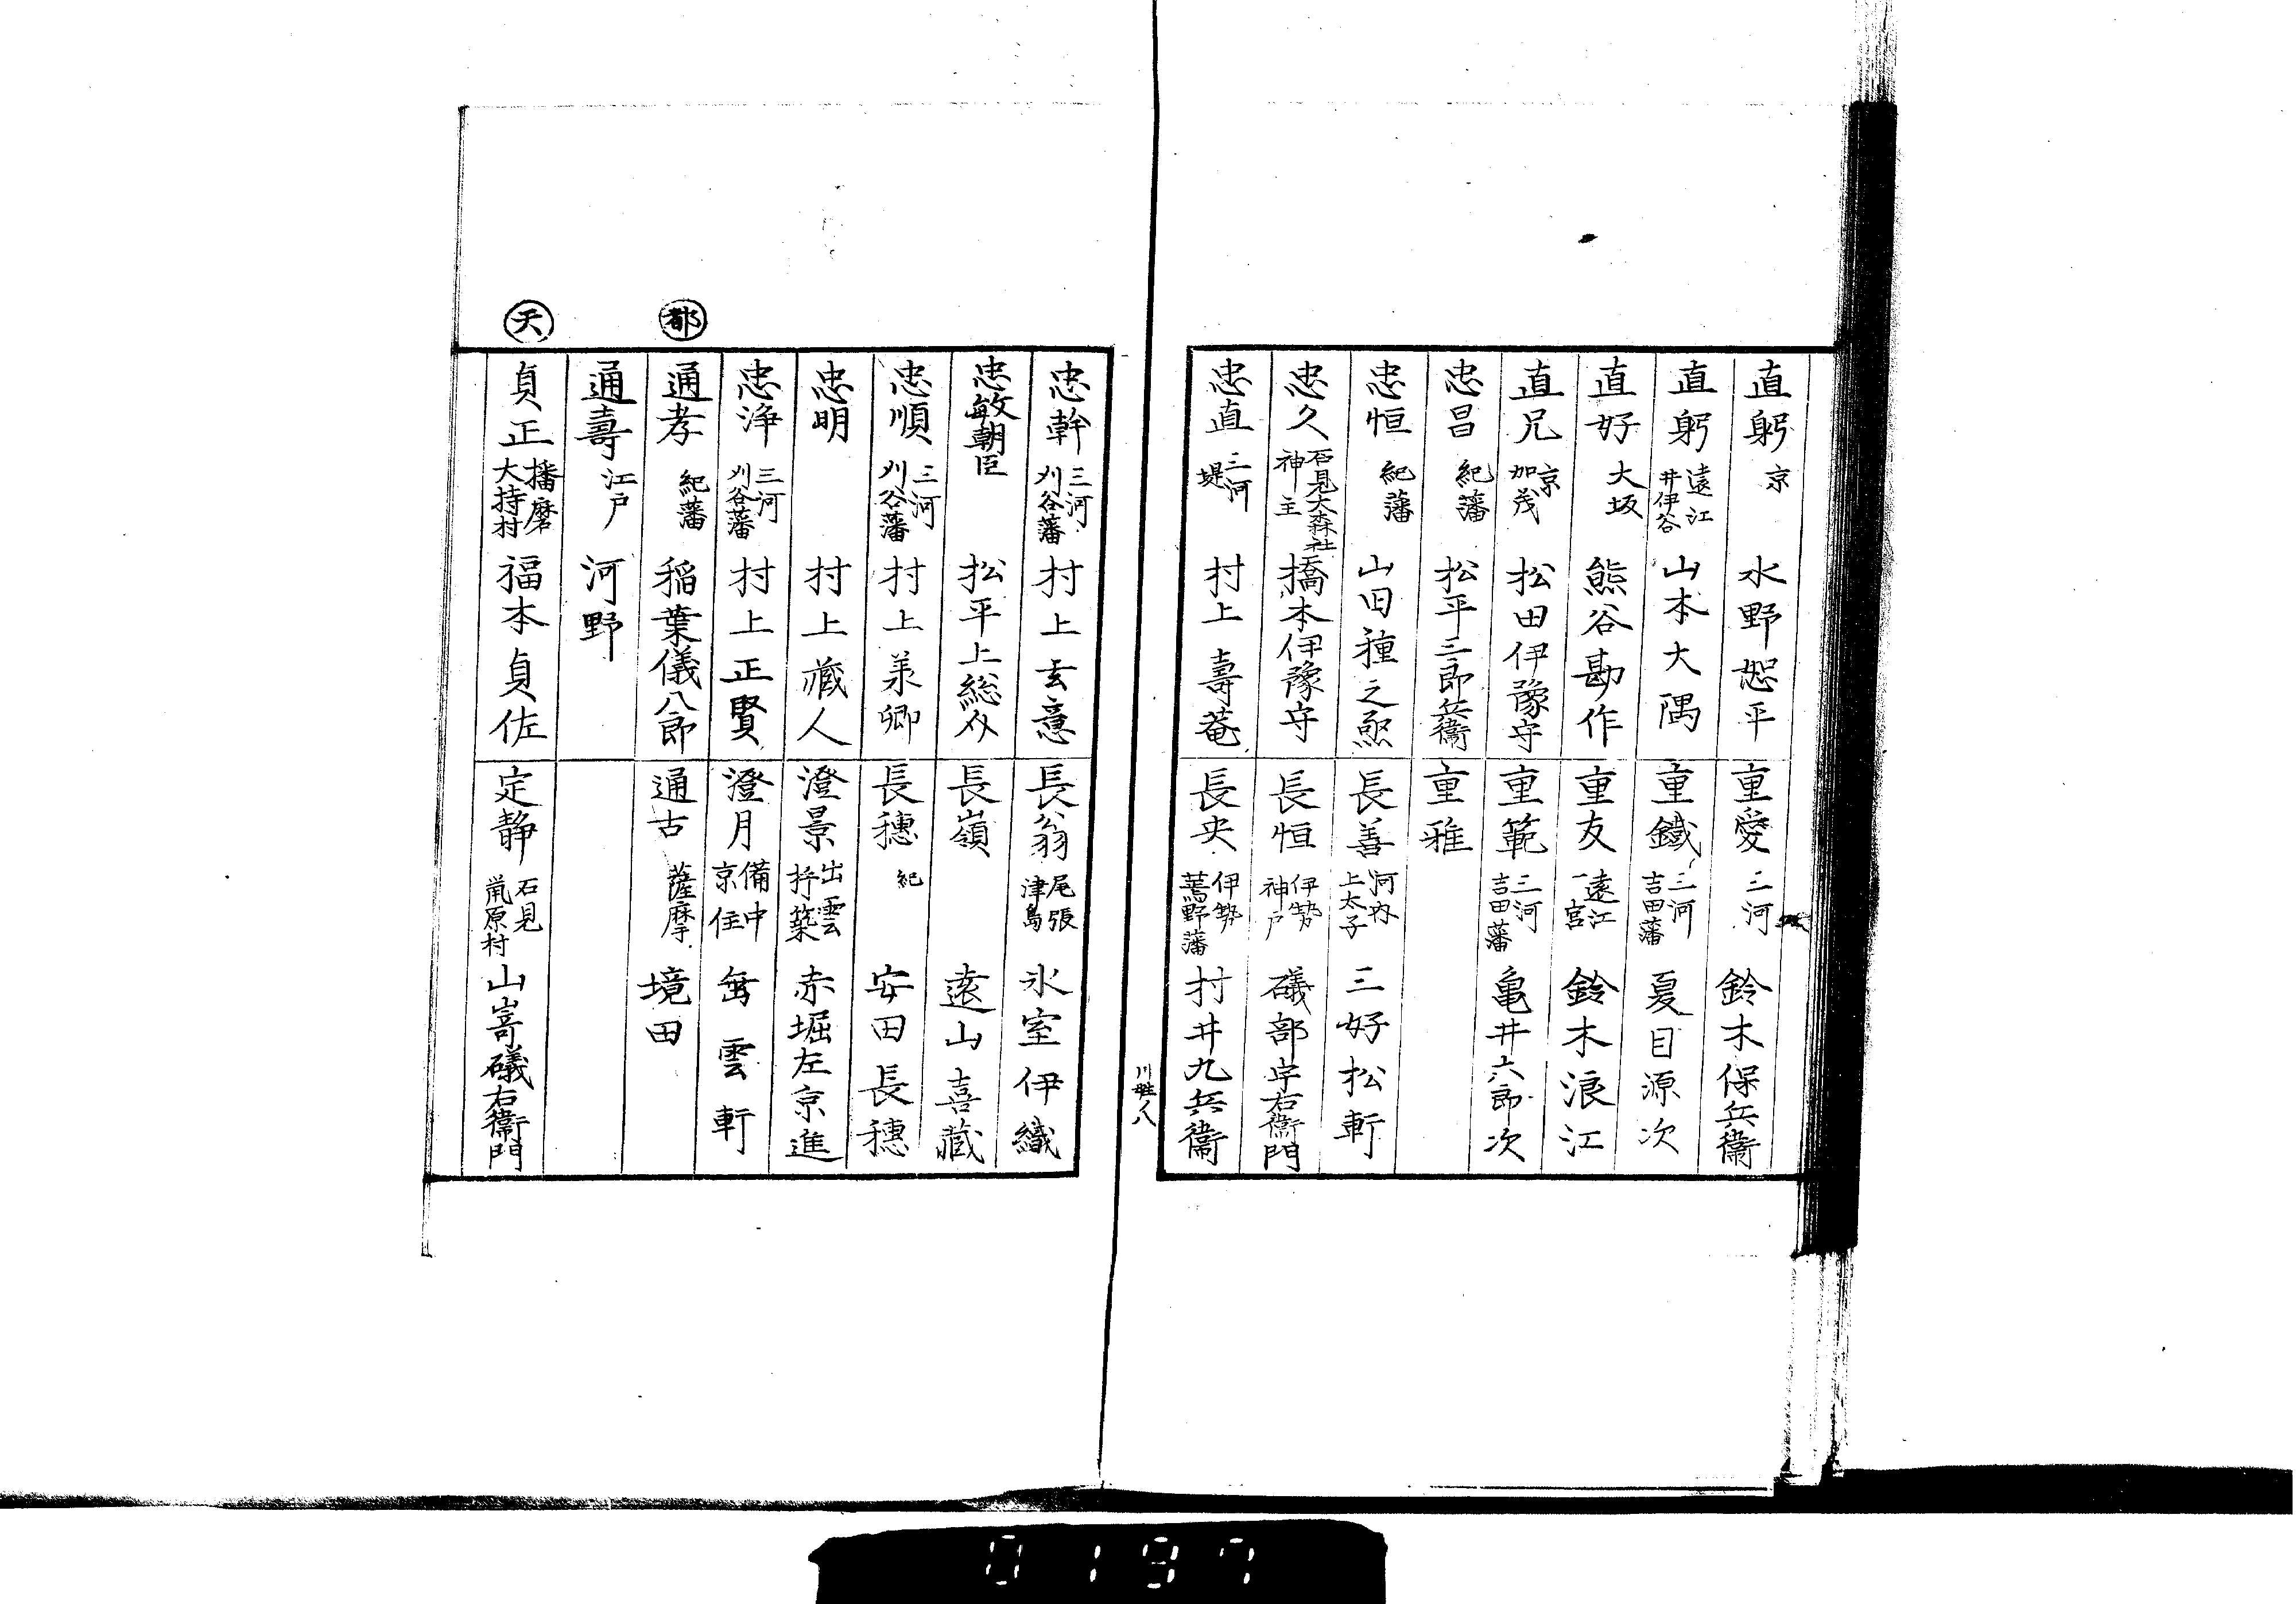 直躬 京 水野恕平
直躬 遠江 井伊谷 山本大隅
直好 大坂 熊谷勘作
直兄 京 加茂 松田伊豫守
忠昌 紀藩 松平三郎兵衞
忠恒 紀藩 山田種之
忠久 石見大森社 神主 橋本伊豫守
忠直 三河 堤 村上壽菴
重愛 三河 鈴木保兵衞
重鐵 三河 吉田藩 夏目源次
重友 遠江 一宮 鈴木浪江
重範 三河 吉田藩 亀井六郎次
重雅
長善 河内 上太子 三好松軒
長恒 伊勢 神戸 礒部宇右衞門
長央 伊勢 薦野藩 村井九兵衞
忠幹 三河 刈谷藩 村上玄意
忠敏朝臣 松平上総介
忠順 三河 刈谷藩 村上承卿
忠明 村上藏人
忠浄 三河 刈谷藩 村上正賢
都
通孝 紀藩 稲葉儀八郎
通壽 江戸 河野
天
貞正 播磨 大持村 福本貞佐
長翁 尾張 津島 氷室伊織
長嶺 遠山喜藏
長穗 紀 安田長穗
澄景 出雲 杵築 赤堀左京進
澄月 備中 京住 雲軒
通古 薩摩 境田
定静 石見 原村 山嵜礒右衞門
0197